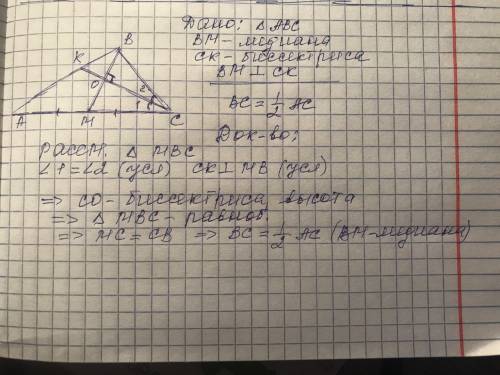 Дано: △ABC
BM-медиана
CK-биссектриса
BM⊥CK
BC=1/2 AC
Док-во:
B
K
O
2
1
A
M
C
Рассм. △MBC
∠1=∠2 (усл) CK⊥MB (усл)
=> CO-биссектриса, высота
=> △MBC-равноб.
=> MC=CB => BC=1/2 AC (BM-медиана)